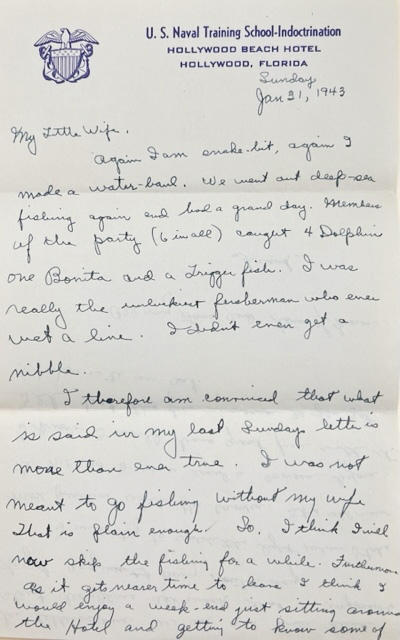 U. S. Naval Training School-Indoctrination
HOLLYWOOD BEACH HOTEL
HOLLYWOOD, FLORIDA
Sunday
Jan 31, 1943
My Little Wife,
Again I am snake-bit, again I
made a water-haul. We went out deep-sea
fishing again and had a grand day. Members
of the party (6 in all) caught 4 Dolphin
one Bonita and a Trigger fish. I was
really the unluckiest fisherman who ever
wet a line. I didn't even get a
nibble.
I therefore am convinced that what
is said in my last Sundays letter is
more than ever true. I was not
meant to go fishing without my wife
That is plain enough. So, I think I will
now skip the fishing for a while. Furthermore
as it gets nearer time to leave I think I
would enjoy a week-end just sitting around
the Hotel and getting to know some of